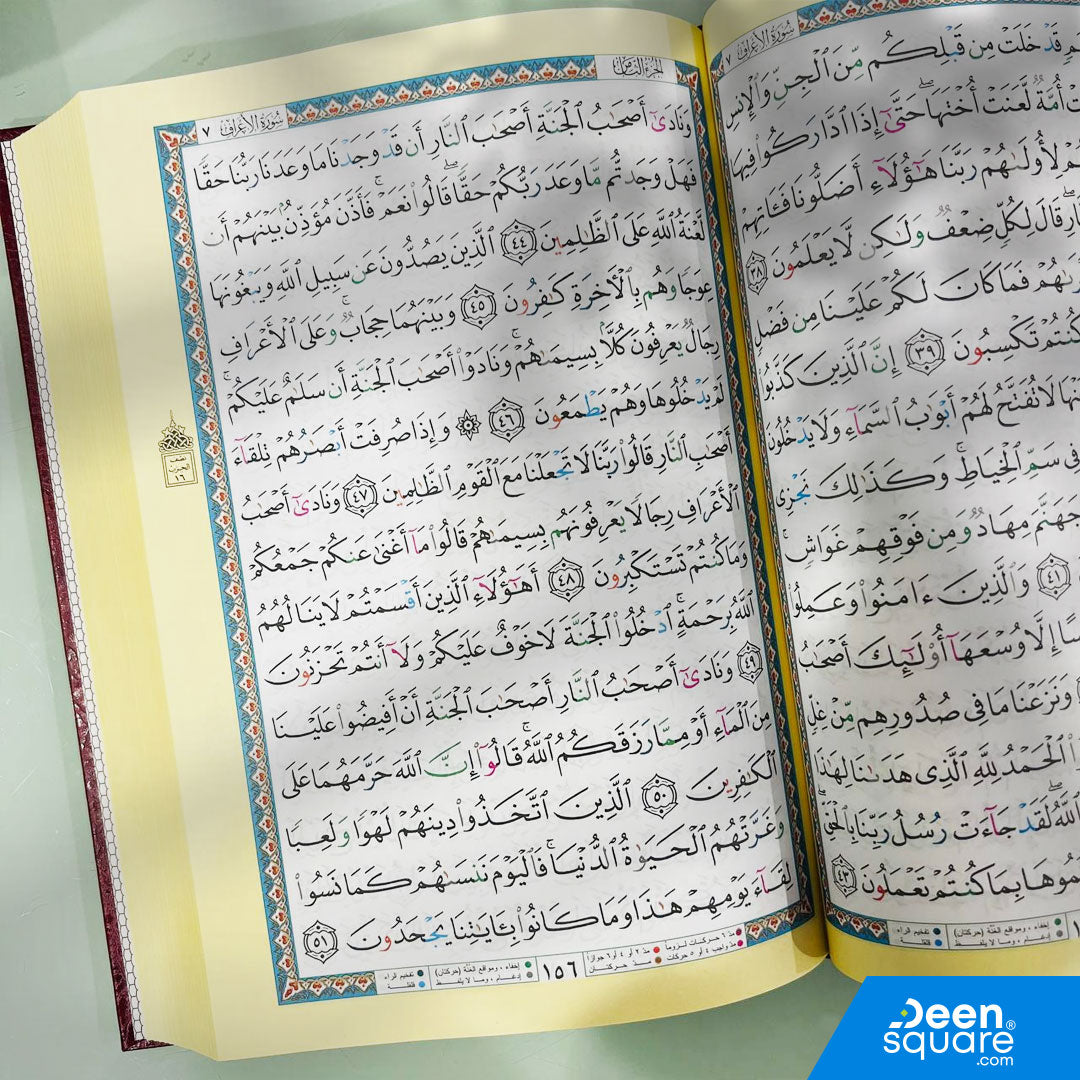 سُورَةُ الأَعْرَافِ ٧
قَدْ خَلَتْ مِن قَبْلِكُم مِّنَ ٱلْجِنِّ وَٱلْإِنسِ
أُمَّةٌ لَّعَنَتْ أُخْتَهَا ۖ حَتَّىٰٓ إِذَا ٱدَّارَكُوا۟ فِيهَا
لِأُولَىٰهُمْ رَبَّنَا هَـٰٓؤُلَآءِ أَضَلُّونَا فَـَٔاتِهِمْ
قَالَ لِكُلٍّ ضِعْفٌ وَلَـٰكِن لَّا يَعْلَمُونَ ٣٨
فَمَا كَانَ لَكُمْ عَلَيْنَا مِن فَضْلٍ
كُنتُمْ تَكْسِبُونَ ٣٩ إِنَّ ٱلَّذِينَ كَذَّبُوا۟
لَا تُفَتَّحُ لَهُمْ أَبْوَٰبُ ٱلسَّمَآءِ وَلَا يَدْخُلُونَ
فِى سَمِّ ٱلْخِيَاطِ ۚ وَكَذَٰلِكَ نَجْزِى
جَهَنَّمَ مِهَادٌ وَمِن فَوْقِهِمْ غَوَاشٍ ۚ
٤١ وَٱلَّذِينَ ءَامَنُوا۟ وَعَمِلُوا۟
إِلَّا وُسْعَهَآ أُو۟لَـٰٓئِكَ أَصْحَـٰبُ
وَنَزَعْنَا مَا فِى صُدُورِهِم مِّنْ غِلٍّ
ٱلْحَمْدُ لِلَّهِ ٱلَّذِى هَدَىٰنَا لِهَـٰذَا
ٱللَّهُ ۖ لَقَدْ جَآءَتْ رُسُلُ رَبِّنَا بِٱلْحَقِّ ۖ
بِمَا كُنتُمْ تَعْمَلُونَ ٤٣
إخفاء ، ومواقع الغُنَّة (حركتان) تفخيم الراء
إدغام ، وما لا يلفظ قلقلة
الجزء الثامن سُورَةُ الأَعْرَافِ ٧
وَنَادَىٰٓ أَصْحَـٰبُ ٱلْجَنَّةِ أَصْحَـٰبَ ٱلنَّارِ أَن قَدْ وَجَدْنَا مَا وَعَدَنَا رَبُّنَا حَقًّا
فَهَلْ وَجَدتُّم مَّا وَعَدَ رَبُّكُمْ حَقًّا ۖ قَالُوا۟ نَعَمْ ۚ فَأَذَّنَ مُؤَذِّنٌۢ بَيْنَهُمْ أَن
لَّعْنَةُ ٱللَّهِ عَلَى ٱلظَّـٰلِمِينَ ٤٤ ٱلَّذِينَ يَصُدُّونَ عَن سَبِيلِ ٱللَّهِ وَيَبْغُونَهَا
عِوَجًا وَهُم بِٱلْـَٔاخِرَةِ كَـٰفِرُونَ ٤٥ وَبَيْنَهُمَا حِجَابٌ ۚ وَعَلَى ٱلْأَعْرَافِ
رِجَالٌ يَعْرِفُونَ كُلًّۢا بِسِيمَىٰهُمْ ۚ وَنَادَوْا۟ أَصْحَـٰبَ ٱلْجَنَّةِ أَن سَلَـٰمٌ عَلَيْكُمْ ۚ
لَمْ يَدْخُلُوهَا وَهُمْ يَطْمَعُونَ ٤٦ ۞ وَإِذَا صُرِفَتْ أَبْصَـٰرُهُمْ تِلْقَآءَ
أَصْحَـٰبِ ٱلنَّارِ قَالُوا۟ رَبَّنَا لَا تَجْعَلْنَا مَعَ ٱلْقَوْمِ ٱلظَّـٰلِمِينَ ٤٧ وَنَادَىٰٓ أَصْحَـٰبُ
ٱلْأَعْرَافِ رِجَالًا يَعْرِفُونَهُم بِسِيمَىٰهُمْ قَالُوا۟ مَآ أَغْنَىٰ عَنكُمْ جَمْعُكُمْ
وَمَا كُنتُمْ تَسْتَكْبِرُونَ ٤٨ أَهَـٰٓؤُلَآءِ ٱلَّذِينَ أَقْسَمْتُمْ لَا يَنَالُهُمُ
ٱللَّهُ بِرَحْمَةٍ ۚ ٱدْخُلُوا۟ ٱلْجَنَّةَ لَا خَوْفٌ عَلَيْكُمْ وَلَآ أَنتُمْ تَحْزَنُونَ
٤٩ وَنَادَىٰٓ أَصْحَـٰبُ ٱلنَّارِ أَصْحَـٰبَ ٱلْجَنَّةِ أَنْ أَفِيضُوا۟ عَلَيْنَا
مِنَ ٱلْمَآءِ أَوْ مِمَّا رَزَقَكُمُ ٱللَّهُ ۚ قَالُوٓا۟ إِنَّ ٱللَّهَ حَرَّمَهُمَا عَلَى
ٱلْكَـٰفِرِينَ ٥٠ ٱلَّذِينَ ٱتَّخَذُوا۟ دِينَهُمْ لَهْوًا وَلَعِبًا
وَغَرَّتْهُمُ ٱلْحَيَوٰةُ ٱلدُّنْيَا ۚ فَٱلْيَوْمَ نَنسَىٰهُمْ كَمَا نَسُوا۟
لِقَآءَ يَوْمِهِمْ هَـٰذَا وَمَا كَانُوا۟ بِـَٔايَـٰتِنَا يَجْحَدُونَ ٥١
نصف
الحزب
١٦
مدّ ٦ حركات لزوماً مدّ ٢ أو ٤ أو ٦ جوازاً
مدّ واجب ٤ أو ٥ حركات مدّ حركتان
١٥٦
إخفاء ، ومواقع الغُنَّة (حركتان) تفخيم الراء
إدغام ، وما لا يلفظ قلقلة
Deen
square®
.com